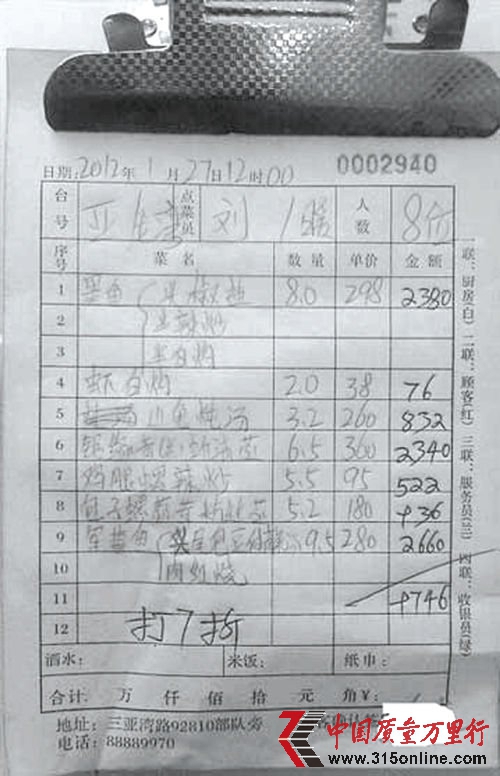 日期:2012年1月27日12时00 0002940
台号 亚 湾 点菜员 刘 人数 8位
序号 菜名 数量 单价 金额
1 椒盐 8.0 298 2380
2 辣炒
3 白灼
4 虾白灼 2.0 38 76
5 鱼炖汤 3.2 260 832
6 6.5 360 2340
7 鸡腿螺辣炒 5.5 95 522
8 5.2 180 936
9 9.5 280 2660
10 肉红烧
11 9746
12 打7折
酒水: 米饭: 纸巾:
合计: 万 仟 佰 拾 元 角 ¥:
地址: 三亚湾路92810部队旁
电话: 88889970
一联:厨房(白) 二联:顾客(红) 三联:服务员(兰) 四联:收银员(绿)
中国质量万里行
www.315online.com